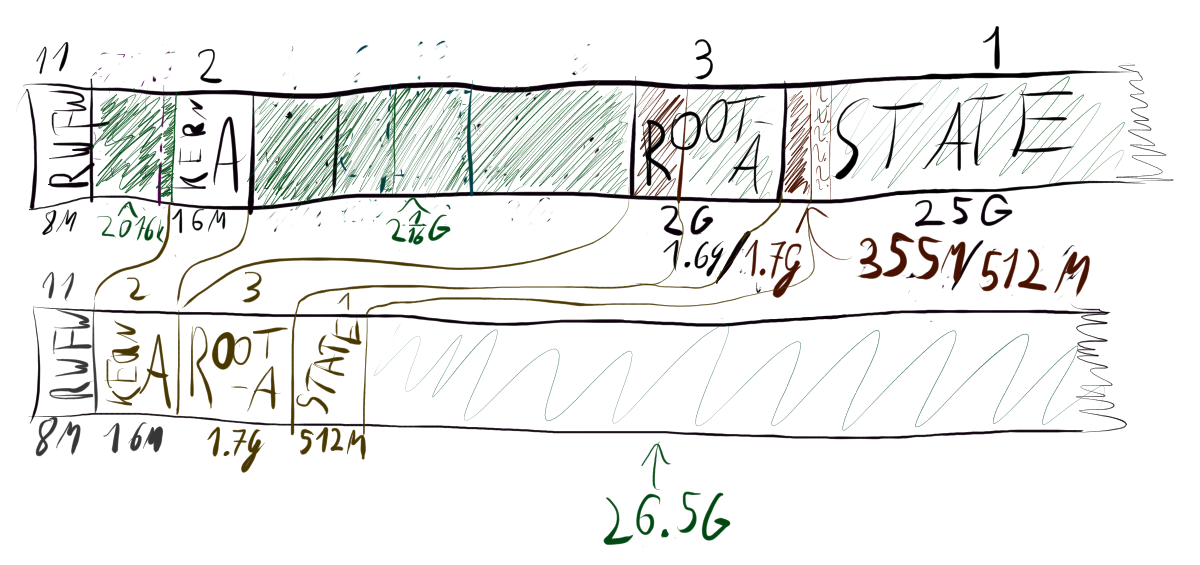 11 2 3 1
RWFW KERN A ROOT-A STATE
8M 2016k 16M 2 1/16 G 2G 25G
1.6g/1.7g 355M/512M
11 2 3 1
RWFW KERN A ROOT-A STATE
8M 16M 1.7g 512M
26.5G